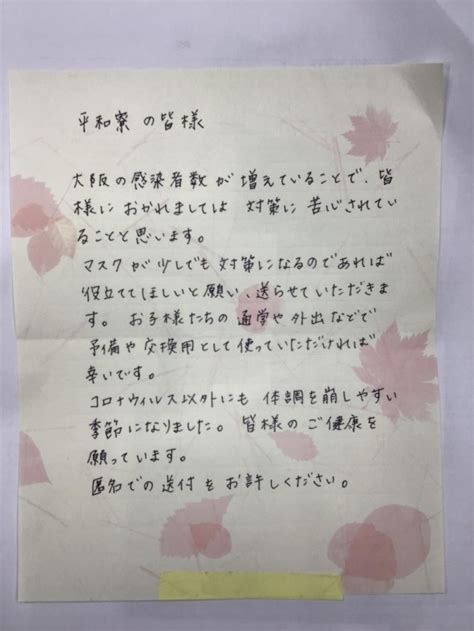 平和寮の皆様
大阪の感染者数が増えていることで、皆
様におかれましては 対策に苦心されてい
ることと思います。
マスクが少しでも対策になるのであれば
役立ててほしいと願い、送らせていただきま
す。お子様たちの通学や外出などで
予備や交換用として使っていただければ
幸いです。
コロナウィルス以外にも 体調を崩しやすい
季節になりました。皆様のご健康を
願っています。
匿名での送付をお許しください。